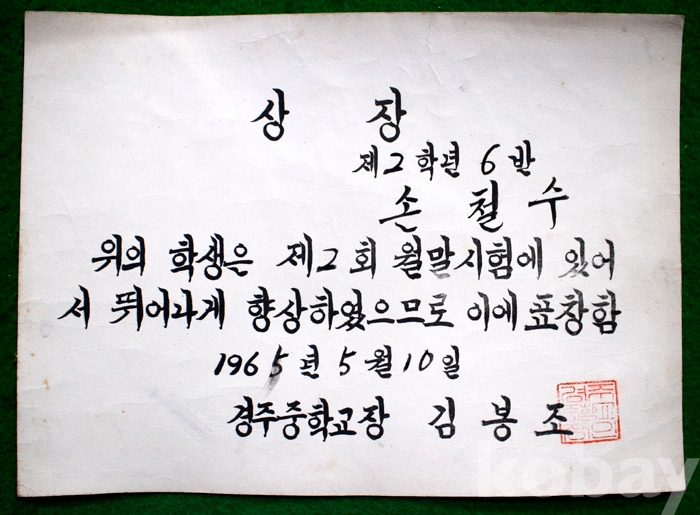 상 장
제2학년 6반
손 철 수
위의 학생은 제2회 월말시험에 있어
서 뛰어나게 향상하였으므로 이에 표창함
1965년 5월 10일
경주중학교장 김 봉 조
kobay